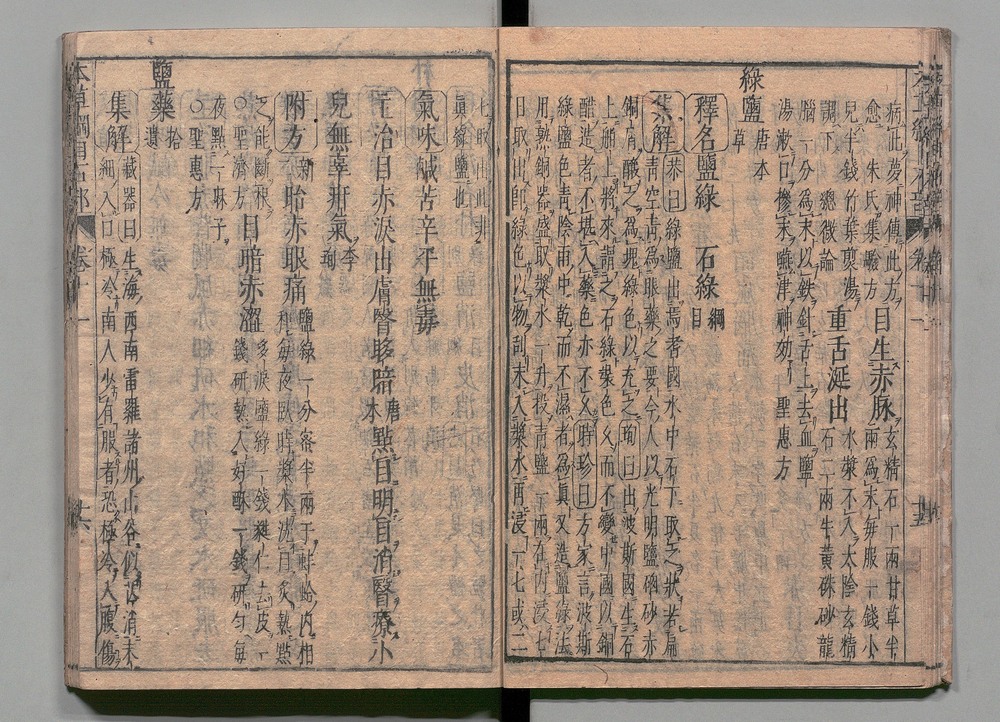 病此夢神傳此方
愈 朱氏集驗方 目生赤脉 玄精石一兩甘草半
兩爲末每服一錢小
兒半錢竹葉煎湯
調下 總微論 重舌涎出 水漿不入太陰玄精
石二兩牛黄硃砂龍
腦一分爲末以鐵針舌上去血鹽
湯漱口摻末嚥津神効 聖惠方
綠鹽 唐本草
釋名 鹽綠 石綠 綱目
集解 恭曰綠鹽出焉耆國水中石下取之狀若扁
青空青爲眼藥之要今人以光明鹽硇砂赤
銅屑釀之爲塊綠色以充之珣曰出波斯國生石
上舶上將來謂之石綠裝色久而不變中國以銅
醋造者不堪入藥色亦不久時珍曰方家言波斯
綠鹽色青陰雨中乾而不濕者爲真又造鹽綠法
用熟銅器盛取漿水一升投青鹽一兩在內浸七
日取出即綠色以物刮末入漿水再浸一七或二
七取出此非
真綠鹽也
氣味 鹹苦辛平無毒
主治 目赤淚出膚瞖眵暗 唐本 點目明目消瞖療小
兒無辜疳氣 李珣
附方 新二 胎赤眼痛 鹽綠一分蜜半兩于蚌蛤內相
和每夜臥時漿水洗目炙熱點
之能斷根
聖濟方 目暗赤澀 多淚鹽綠一錢蕤仁去皮一
錢研熱入好酥一錢研勻每
夜點一麻子
○聖惠方
鹽藥 拾遺
集解 藏器曰生海西南雷羅諸州山谷似芒消末
細入口極冷南人少有服者恐極冷入腹傷